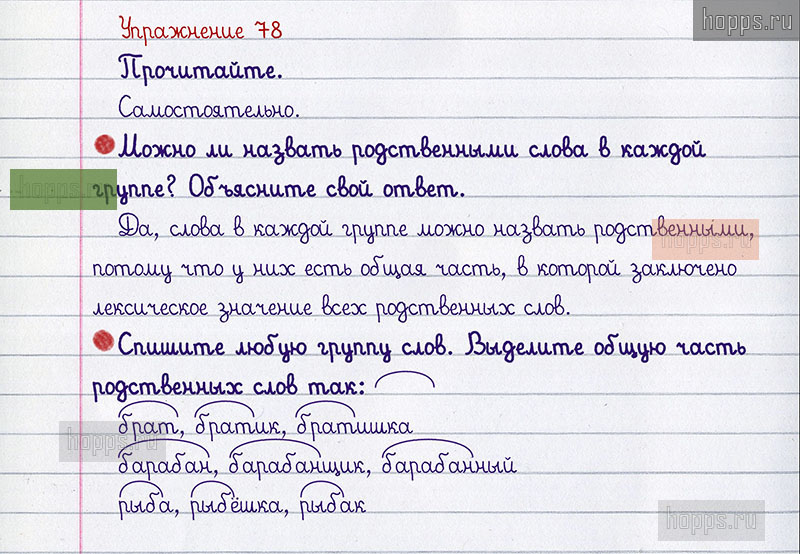 hopps.ru
Упражнение 78
Прочитайте.
Самостоятельно.
Можно ли назвать родственными слова в каждой
группе? Объясните свой ответ.
hopps.ru
Да, слова в каждой группе можно назвать родственными,
hopps.ru
потому что у них есть общая часть, в которой заключено
лексическое значение всех родственных слов.
Спишите любую группу слов. Выделите общую часть
родственных слов так:
брат, братик, братишка
hopps.ru
барабан, барабанщик, барабанный
рыба, рыбёшка, рыбак
hopps.ru